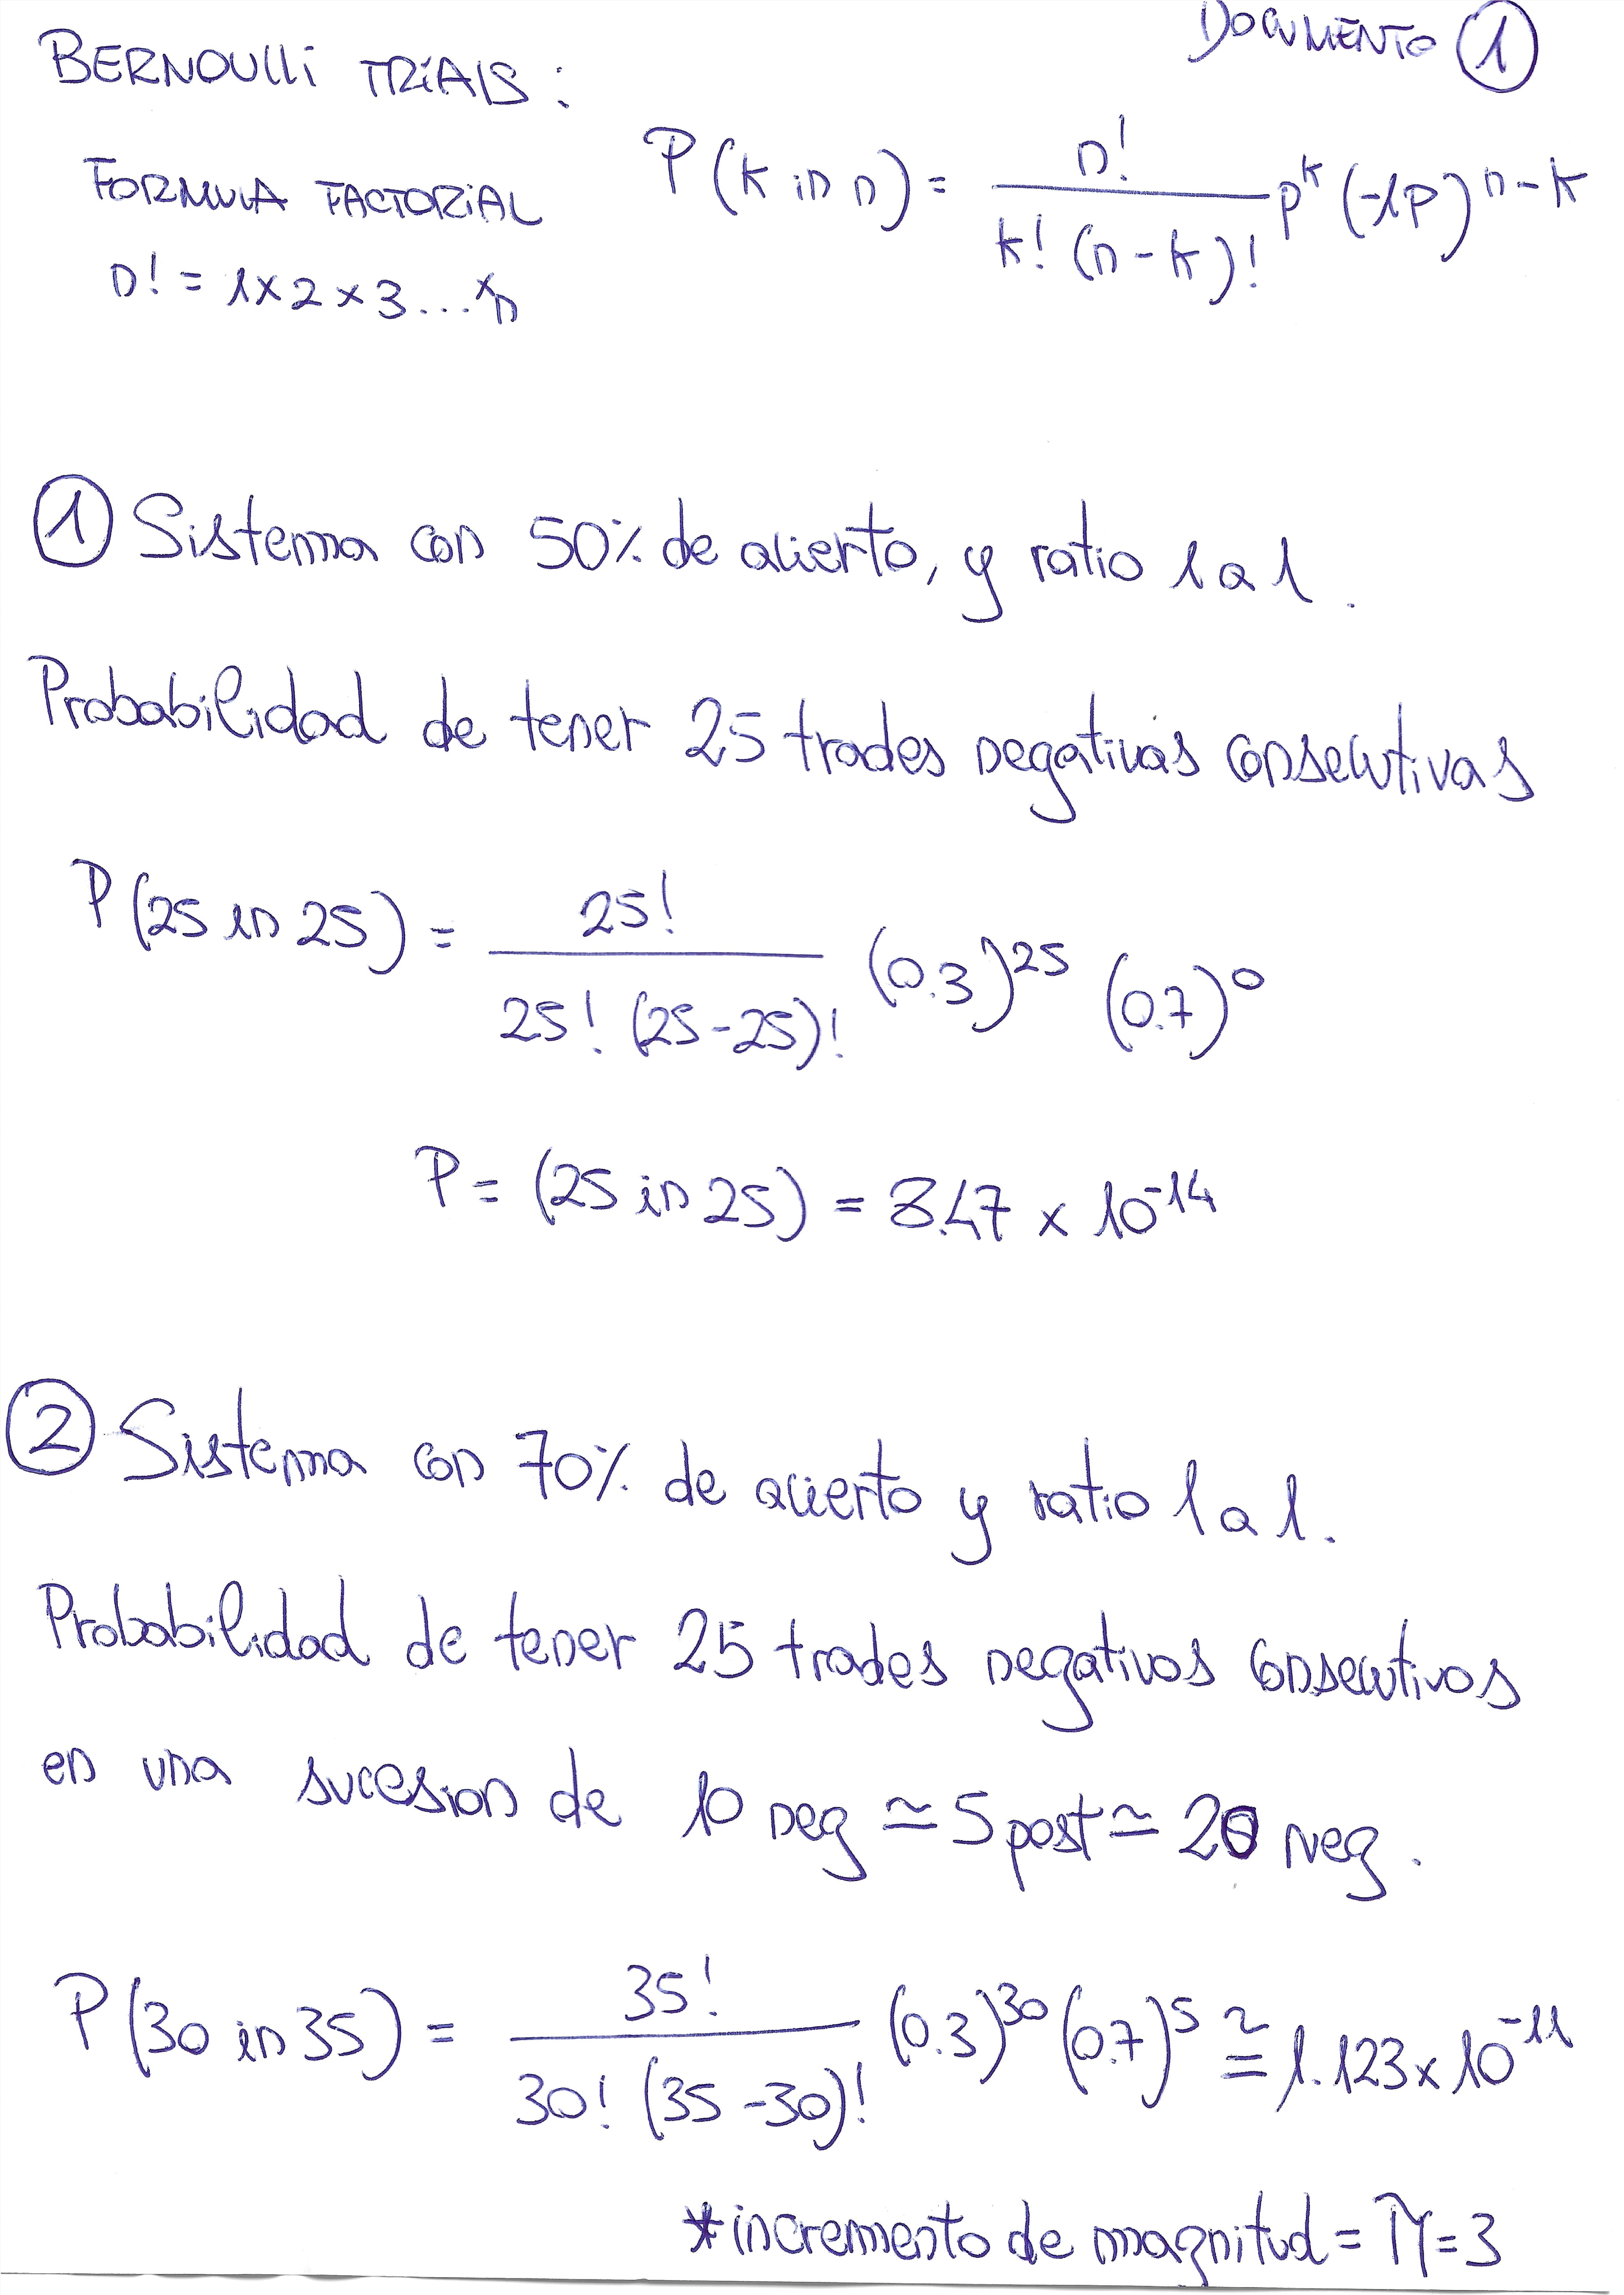 DOCUMENTO 1
BERNOULLI TRIALS:
FORMULA FACTORIAL
n! = 1x2x3...xn
P(k in n) = n! / k!(n-k)! p^k (-1p)^n-k
1 Sistema con 50% de acierto, y ratio 1 a 1.
Probabilidad de tener 25 trades negativas consecutivas
P(25 in 25) = 25! / 25! (25-25)! (0.3)^25 (0.7)^0
P = (25 in 25) = 8.47 x 10^-14
2 Sistema con 70% de acierto y ratio 1 a 1.
Probabilidad de tener 25 trades negativos consecutivos
en una sucesion de 10 neg ≃ 5 post ≃ 20 neg.
P(30 in 35) = 35! / 30! (35-30)! (0.3)^30 (0.7)^5 ≅ 1.123 x 10^-11
*incremento de magnitud = = 3